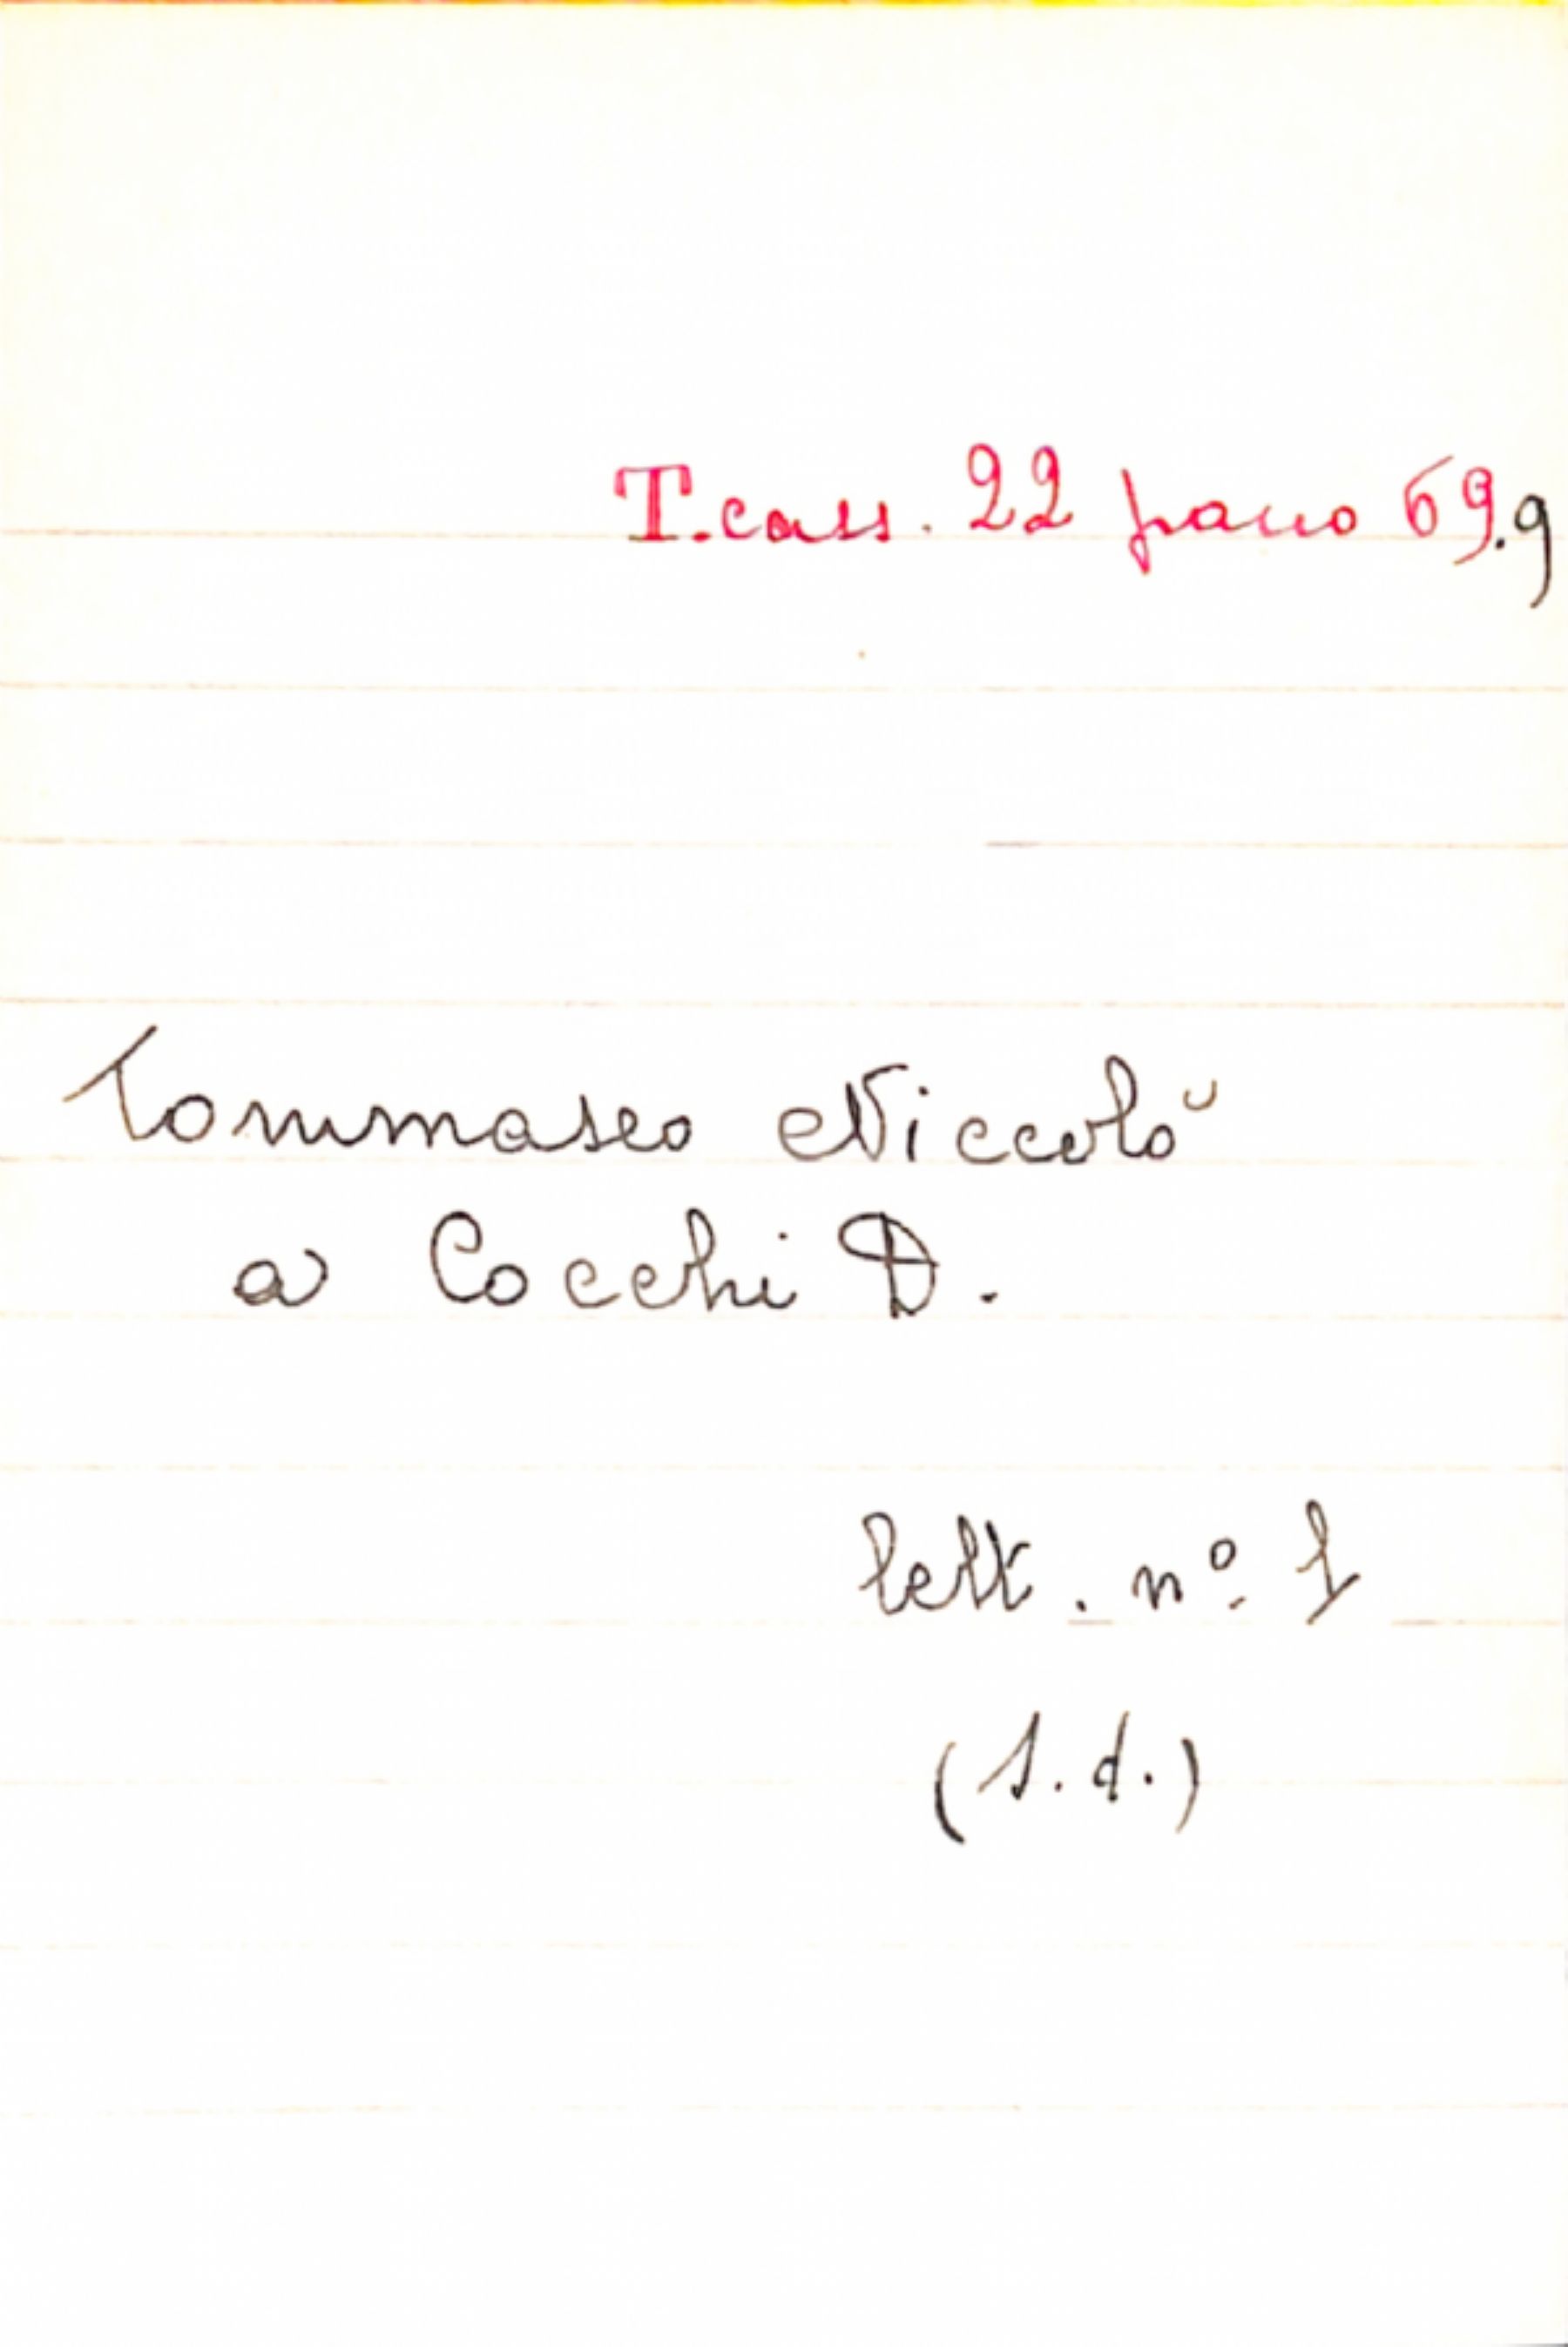 T. cass. 22 pacco 69.9
Tommaseo Niccolò
a Cocchi D.
lett. nº 1
(s.d.)